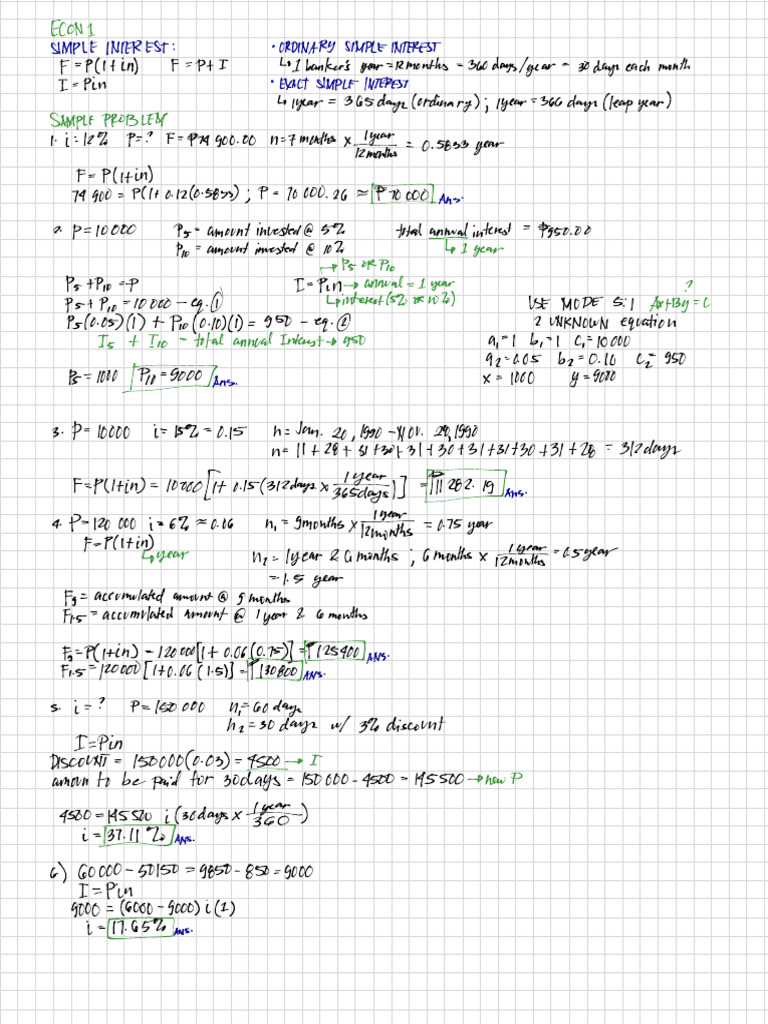 ECON 1
SIMPLE INTEREST:
F = P(1+in) F = P+I
I = Pin
• ORDINARY SIMPLE INTEREST
↳ 1 banker's year = 12 months = 360 days/year = 30 days each month
• EXACT SIMPLE INTEREST
↳ 1 year = 365 days (ordinary); 1 year = 366 days (leap year)
SAMPLE PROBLEM
1. i = 12% P = ? F = ₱74 900.00 n = 7 months x 1 year / 12 months = 0.5833 year
F = P(1+in)
74 900 = P(1+0.12(0.5833); P = 70 000.26 ≈ ₱70 000 Ans.
2. P = 10 000 P5 = amount invested @ 5% total annual interest = ₱950.00
P10 = amount invested @ 10% ↳ 1 year
→ P5 or P10
P5 + P10 = P I = Pin → annual = 1 year
P5 + P10 = 10 000 – eq. ① ↳ interest (5% or 10%)
P5(0.05)(1) + P10(0.10)(1) = 950 – eq. ②
I5 + I10 – total annual Interest → 950
P5 = 1000 P10 = 9000 Ans.
?
USE MODE 5:1 Ax+By=C
2 UNKNOWN equation
a1=1 b1=1 C1=10 000
a2=0.05 b2=0.10 C2= 950
x = 1000 y = 9000
3. P = 10000 i = 15% = 0.15 n = Jan. 20, 1990 – Nov. 28, 1990
n = 11 + 28 + 31 + 30 + 31 + 30 + 31 + 31 + 30 + 31 + 28 = 312 days
F = P(1+in) = 10000 [1 + 0.15 (312 days x 1 year / 365 days)] = ₱11 282.19 Ans.
4. P = 120 000 i = 6% ≈ 0.06 n1 = 9 months x 1 year / 12 months = 0.75 year
F = P(1+in)
↳ year
n2 = 1 year & 6 months ; 6 months x 1 year / 12 months = 0.5 year
= 1.5 year
F9 = accumulated amount @ 9 months
F1.5 = accumulated amount @ 1 year & 6 months
F9 = P(1+in) – 120 000 [1 + 0.06 (0.75)] = ₱125400 ANS.
F1.5 = 120 000 [1+0.06 (1.5)] = ₱130800 ANS.
5. i = ? P = 150 000 n1 = 60 days
n2 = 30 days w/ 3% discount
I = Pin
DISCOUNT = 150000(0.03) = 4500 → I
amoun to be paid for 30days = 150 000 – 4500 = 145 500 → new P
4500 = 145 500 i (30 days x 1 year / 360)
i = 37.11% Ans.
6) 60 000 – 50150 = 9850 – 850 = 9000
I = Pin
9000 = (6000 – 9000) i (1)
i = 17.65% Ans.